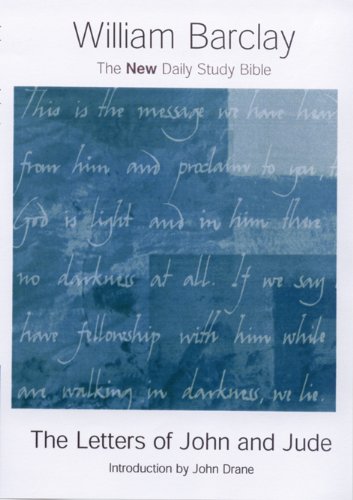 William Barclay
The New Daily Study Bible
This is the message we have hear
from him and proclaim to you, t
God is light and in him there
no darkness at all. If we say
have fellowship with him while
are walking in darkness, we lie.
The Letters of John and Jude
Introduction by John Drane